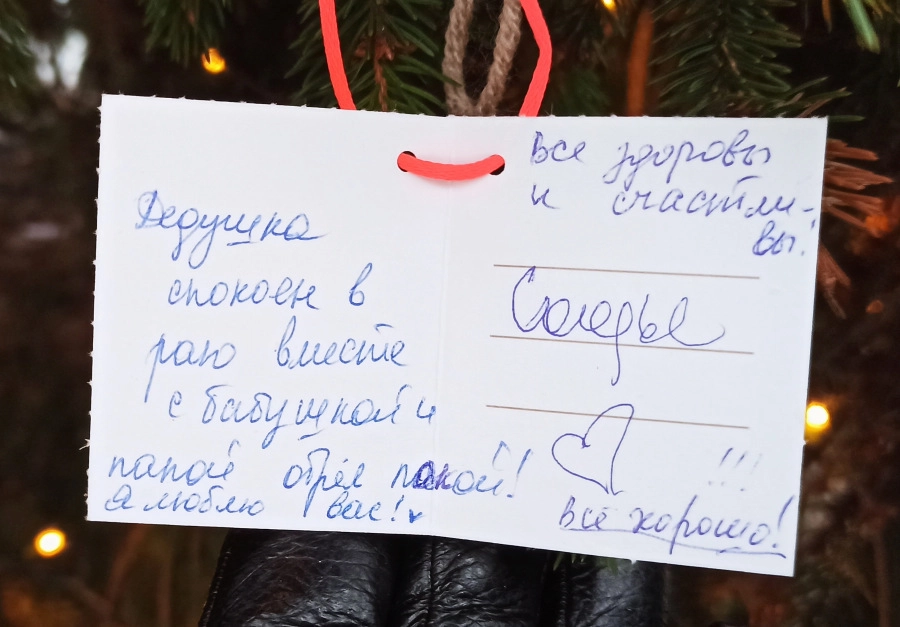 Дедушка
спокоен в
раю вместе
с бабушкой и
папой обрёл покой!
Я люблю вас!
Все здоровы
и счастли-
вы!
!!!
Всё хорошо!